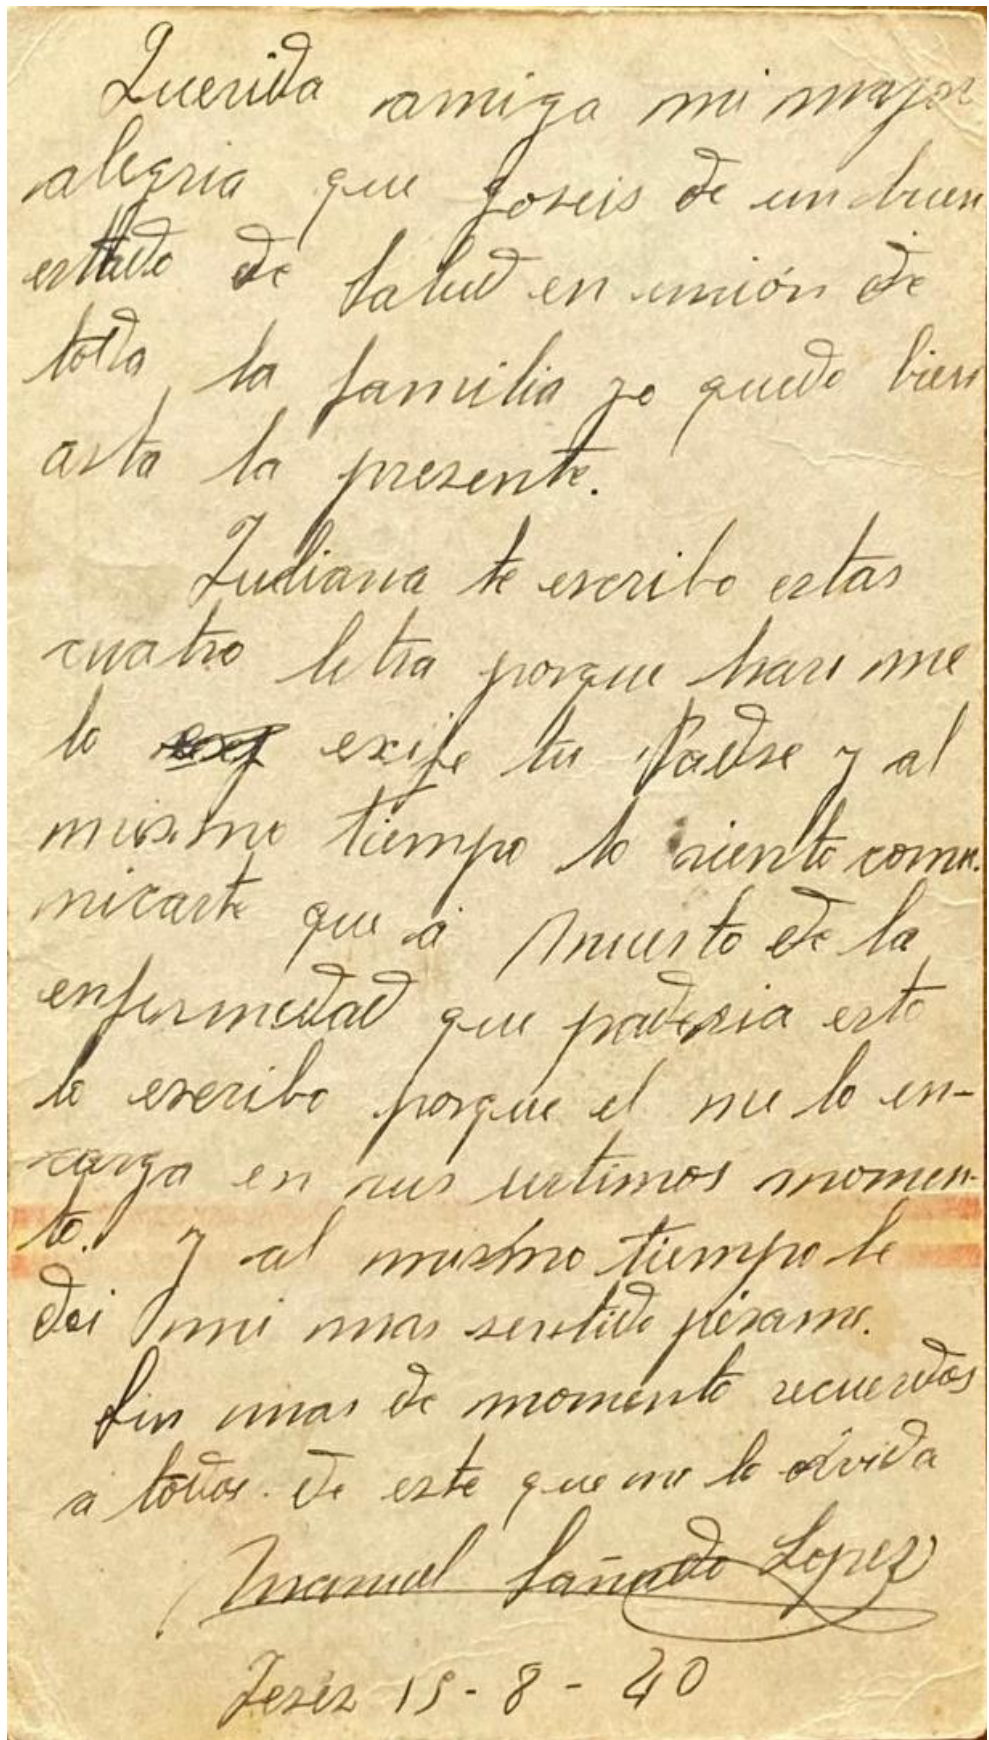 Querida amiga mi mayor
alegria que goseis de un buen
estado de salud en unión de
toda la familia yo quedo bien
asta la presente.
Juliana te escribo estas
cuatro letra porque haci me
lo exije tu Padre y al
mismo tiempo lo siento comu-
nicarte que a muerto de la
enfermedad que padesia esto
lo escribo porque el me lo en-
carga en sus urtimos momen-
to. y al mismo tiempo le
doi mi mas sentido pesame.
Sin mas de momento recuerdos
a todos. de este que no lo olvida
Manuel Sañudo Lopez
Jerez 15-8-40